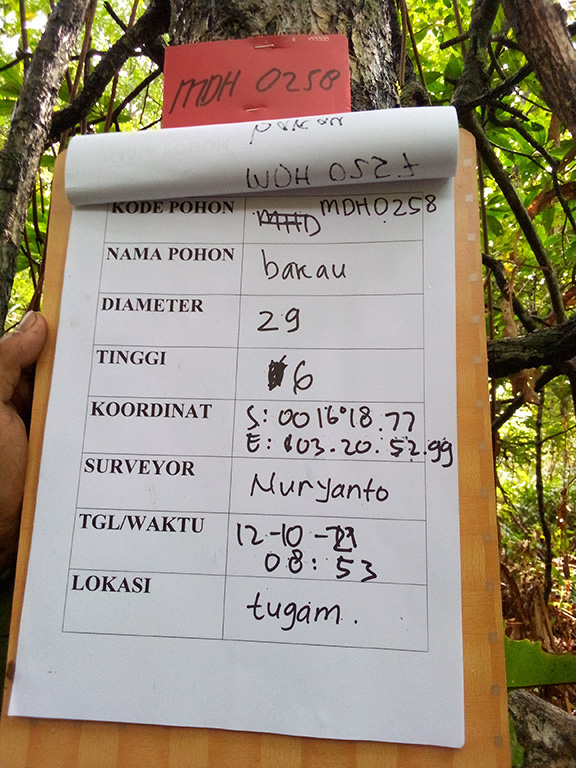 MDH 0258
KODE POHON MDH0258
NAMA POHON bakau
DIAMETER 29
TINGGI 6
KOORDINAT S: 00 16 18.77
E: 103.20.52.99
SURVEYOR Nuryanto
TGL/WAKTU 12-10-
08:53
LOKASI tugam.